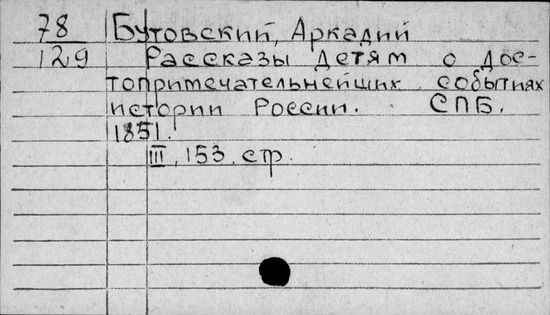 78 Бутовский, Аркадий
129 Рассказы детям о дос-
топримечательнейших событиях
истории России. СПБ.
1851.
III, 153 стр.